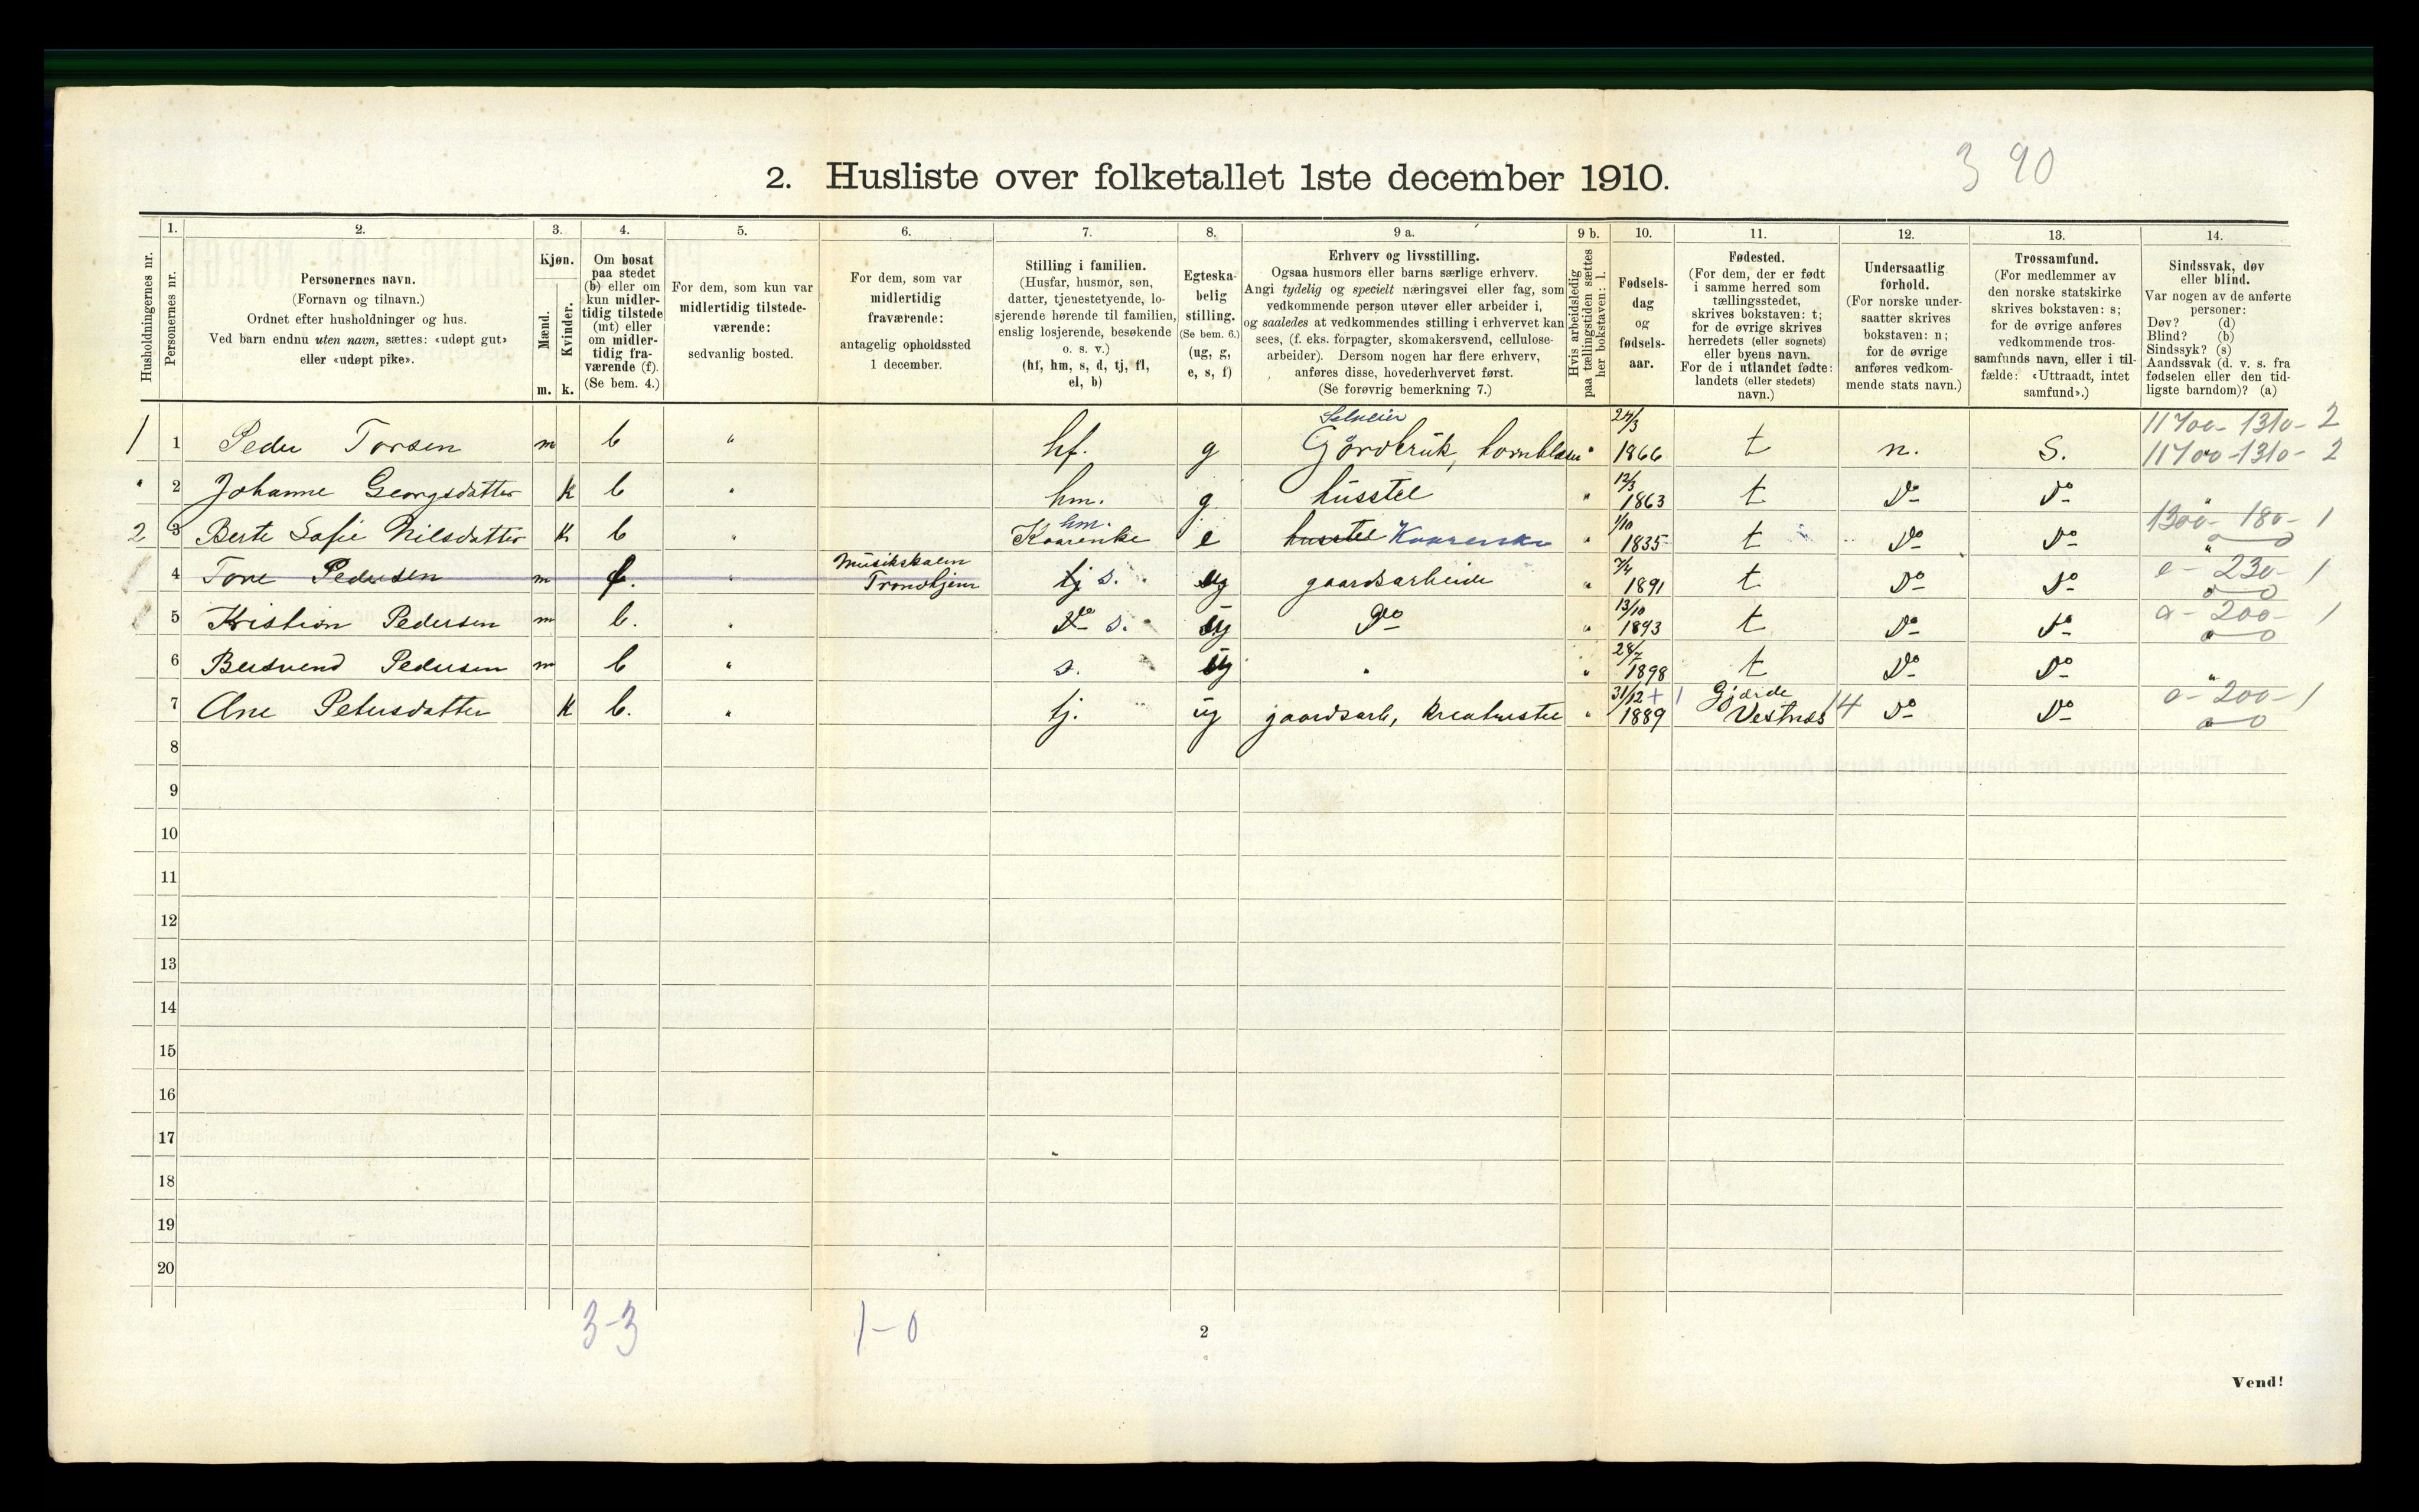 3 90
2. Husliste over folketallet 1ste december 1910.
Husholdningernes nr.
1.
Personernes nr.
2.
Personernes navn.
(Fornavn og tilnavn.)
Ordnet efter husholdninger og hus.
Ved barn endnu uten navn, sættes: «udøpt gut»
eller «udøpt pike».
3.
Kjøn.
Mænd.
Kvinder.
m. k.
4.
Om bosat
paa stedet
(b) eller om
kun midler-
tidig tilstede
(mt) eller
om midler-
tidig fra-
værende (f).
(Se bem. 4.)
5.
For dem, som kun var
midlertidig tilstede-
værende:
sedvanlig bosted.
6.
For dem, som var
midlertidig
fraværende:
antagelig opholdssted
1 december.
7.
Stilling i familien.
(Husfar, husmor, søn,
datter, tjenestetyende, lo-
sjerende hørende til familien,
enslig losjerende, besøkende
o. s. v.)
(hf, hm, s, d, tj, fl,
el, b)
8.
Egteska-
belig
stilling.
(Se bem. 6.)
(ug, g,
e, s, f)
9 a.
Erhverv og livsstilling.
Ogsaa husmors eller barns særlige erhverv.
Angi tydelig og specielt næringsvei eller fag, som
vedkommende person utøver eller arbeider i,
og saaledes at vedkommendes stilling i erhvervet kan
sees, (f. eks. forpagter, skomakersvend, cellulose-
arbeider). Dersom nogen har flere erhverv,
anføres disse, hovederhvervet først.
(Se forøvrig bemerkning 7.)
9 b.
Hvis arbeidsledig
paa tællingstiden sættes
her bokstaven: l.
10.
Fødsels-
dag
og
fødsels-
aar.
11.
Fødested.
(For dem, der er født
i samme herred som
tællingsstedet,
skrives bokstaven: t;
for de øvrige skrives
herredets (eller sognets)
eller byens navn.
For de i utlandet fødte:
landets (eller stedets)
navn.)
12.
Undersaatlig
forhold.
(For norske under-
saatter skrives
bokstaven: n;
for de øvrige
anføres vedkom-
mende stats navn.)
13.
Trossamfund.
(For medlemmer av
den norske statskirke
skrives bokstaven: s;
for de øvrige anføres
vedkommende tros-
samfunds navn, eller i til-
fælde: «Uttraadt, intet
samfund».)
14.
Sindssvak, døv
eller blind.
Var nogen av de anførte
personer:
Døv? (d)
Blind? (b)
Sindssyk? (s)
Aandssvak (d. v. s. fra
fødselen eller den tid-
ligste barndom)? (a)
1 1 Peder Torsen m b " hf. g Selveier Gårdbruk, hornblæser " 24/3 1866 t n. S. 11700-1310-2
11700-1310-2
" 2 Johanne Georgsdatter k b " hm. g husstel " 12/3 1863 t Do Do "
2 3 Berte Sofie Nilsdatter k b " Kaarenke hm. e husstel Kaarenke " 1/10 1835 t Do Do 1300-180-1
4 Tore Pedersen m f. " Musikskolen Trondhjem tj s. ug gaardsarbeide " 7/4 1891 t Do Do 0-230-1
5 Kristian Pedersen m b. " Do s. ug Do " 13/10 1893 t Do Do 0-200-1
6 Bersvend Pedersen m b " s. ug " " 28/7 1898 t Do Do "
7 Ane Petersdatter k b. " tj. ug gaardsarb, kreaturstel " 31/12 + 1889 Gjærde Vestnes 14 Do Do 0-200-1
8
9
10
11
12
13
14
15
16
17
18
19
20
3-3
1-0
2
Vend!